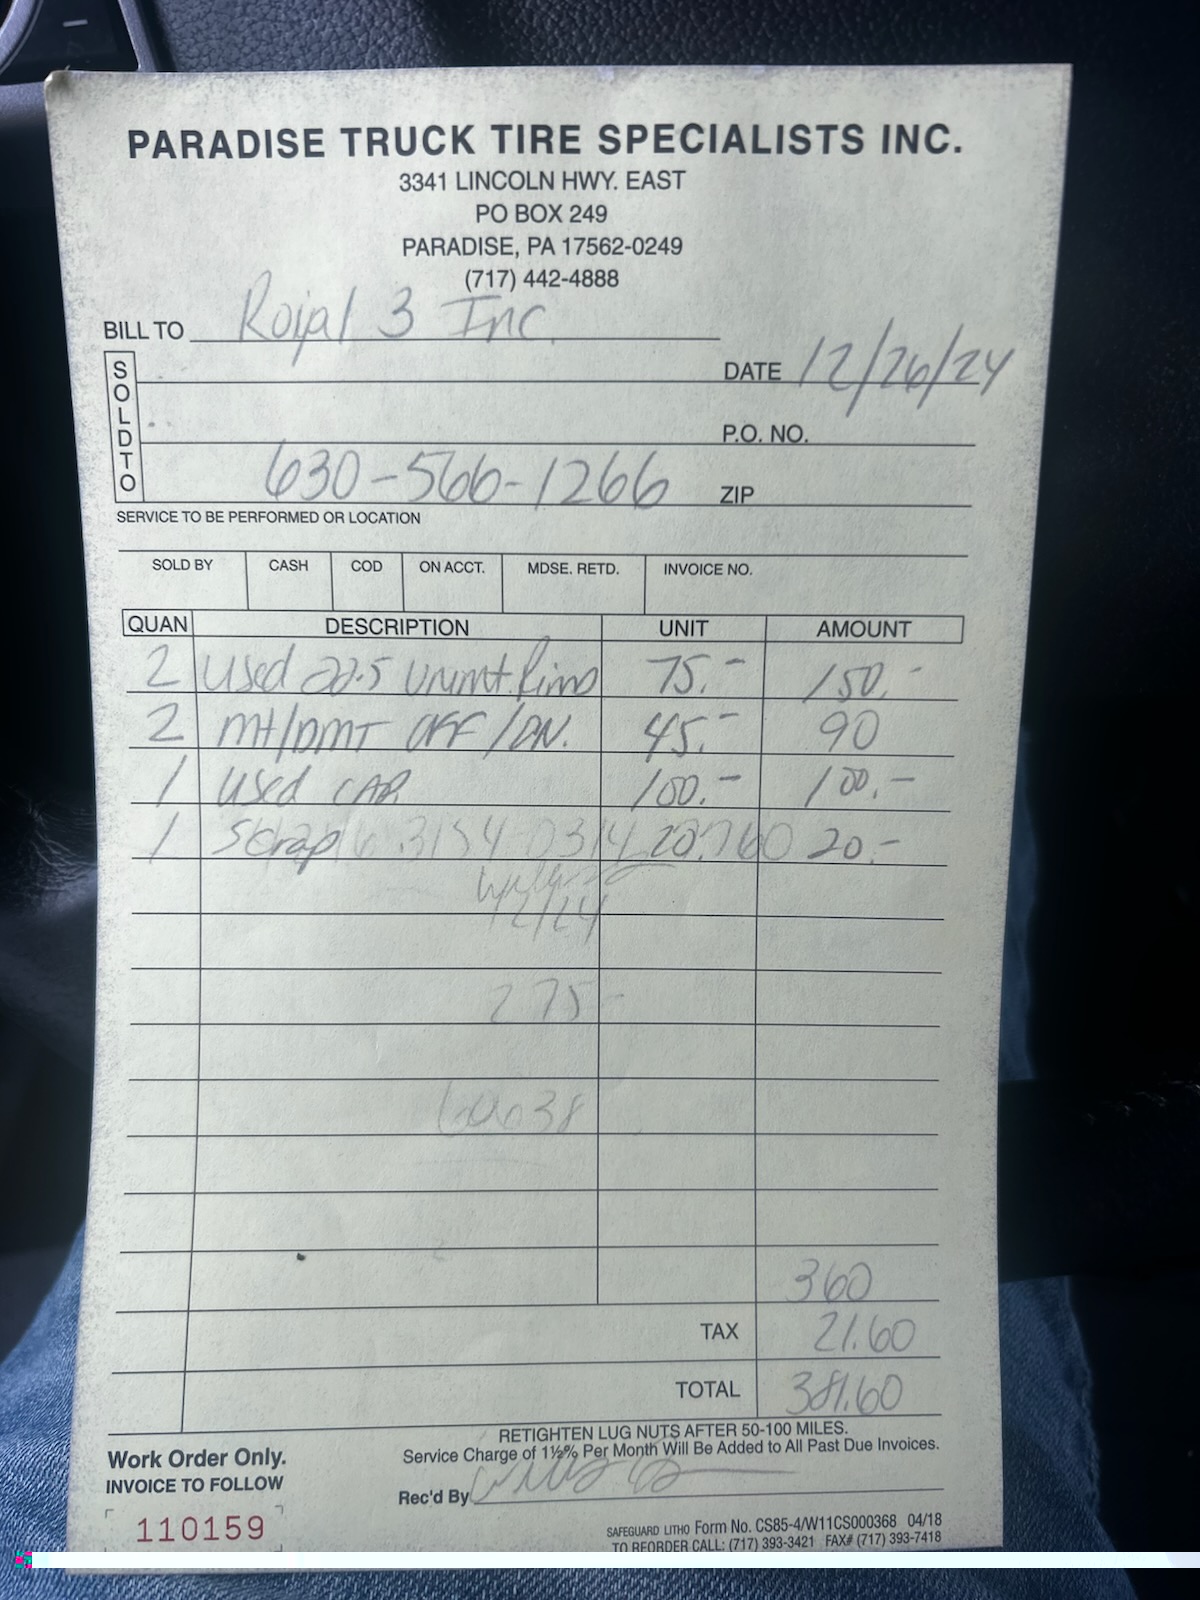 PARADISE TRUCK TIRE SPECIALISTS INC.
3341 LINCOLN HWY. EAST
PO BOX 249
PARADISE, PA 17562-0249
(717) 442-4888
BILL TO Roijal 3 Inc.
SOLD TO
DATE 12/26/24
P.O. NO.
630-566-1266 ZIP
SERVICE TO BE PERFORMED OR LOCATION
SOLD BY CASH COD ON ACCT. MDSE. RETD. INVOICE NO.
QUAN DESCRIPTION UNIT AMOUNT
2 Used 22.5 Unimt. Rims 75.- 150.-
2 Mt/DMT OFF/ON. 45.- 90
1 Used CAP 100.- 100.-
1 Scrap 20. 20.-
12/24
275-
360
TAX 21.60
TOTAL 381.60
RETIGHTEN LUG NUTS AFTER 50-100 MILES.
Service Charge of 1½% Per Month Will Be Added to All Past Due Invoices.
Work Order Only.
INVOICE TO FOLLOW
Rec'd By
110159
SAFEGUARD LITHO Form No. CS85-4/W11CS000368 04/18
TO REORDER CALL: (717) 393-3421 FAX# (717) 393-7418